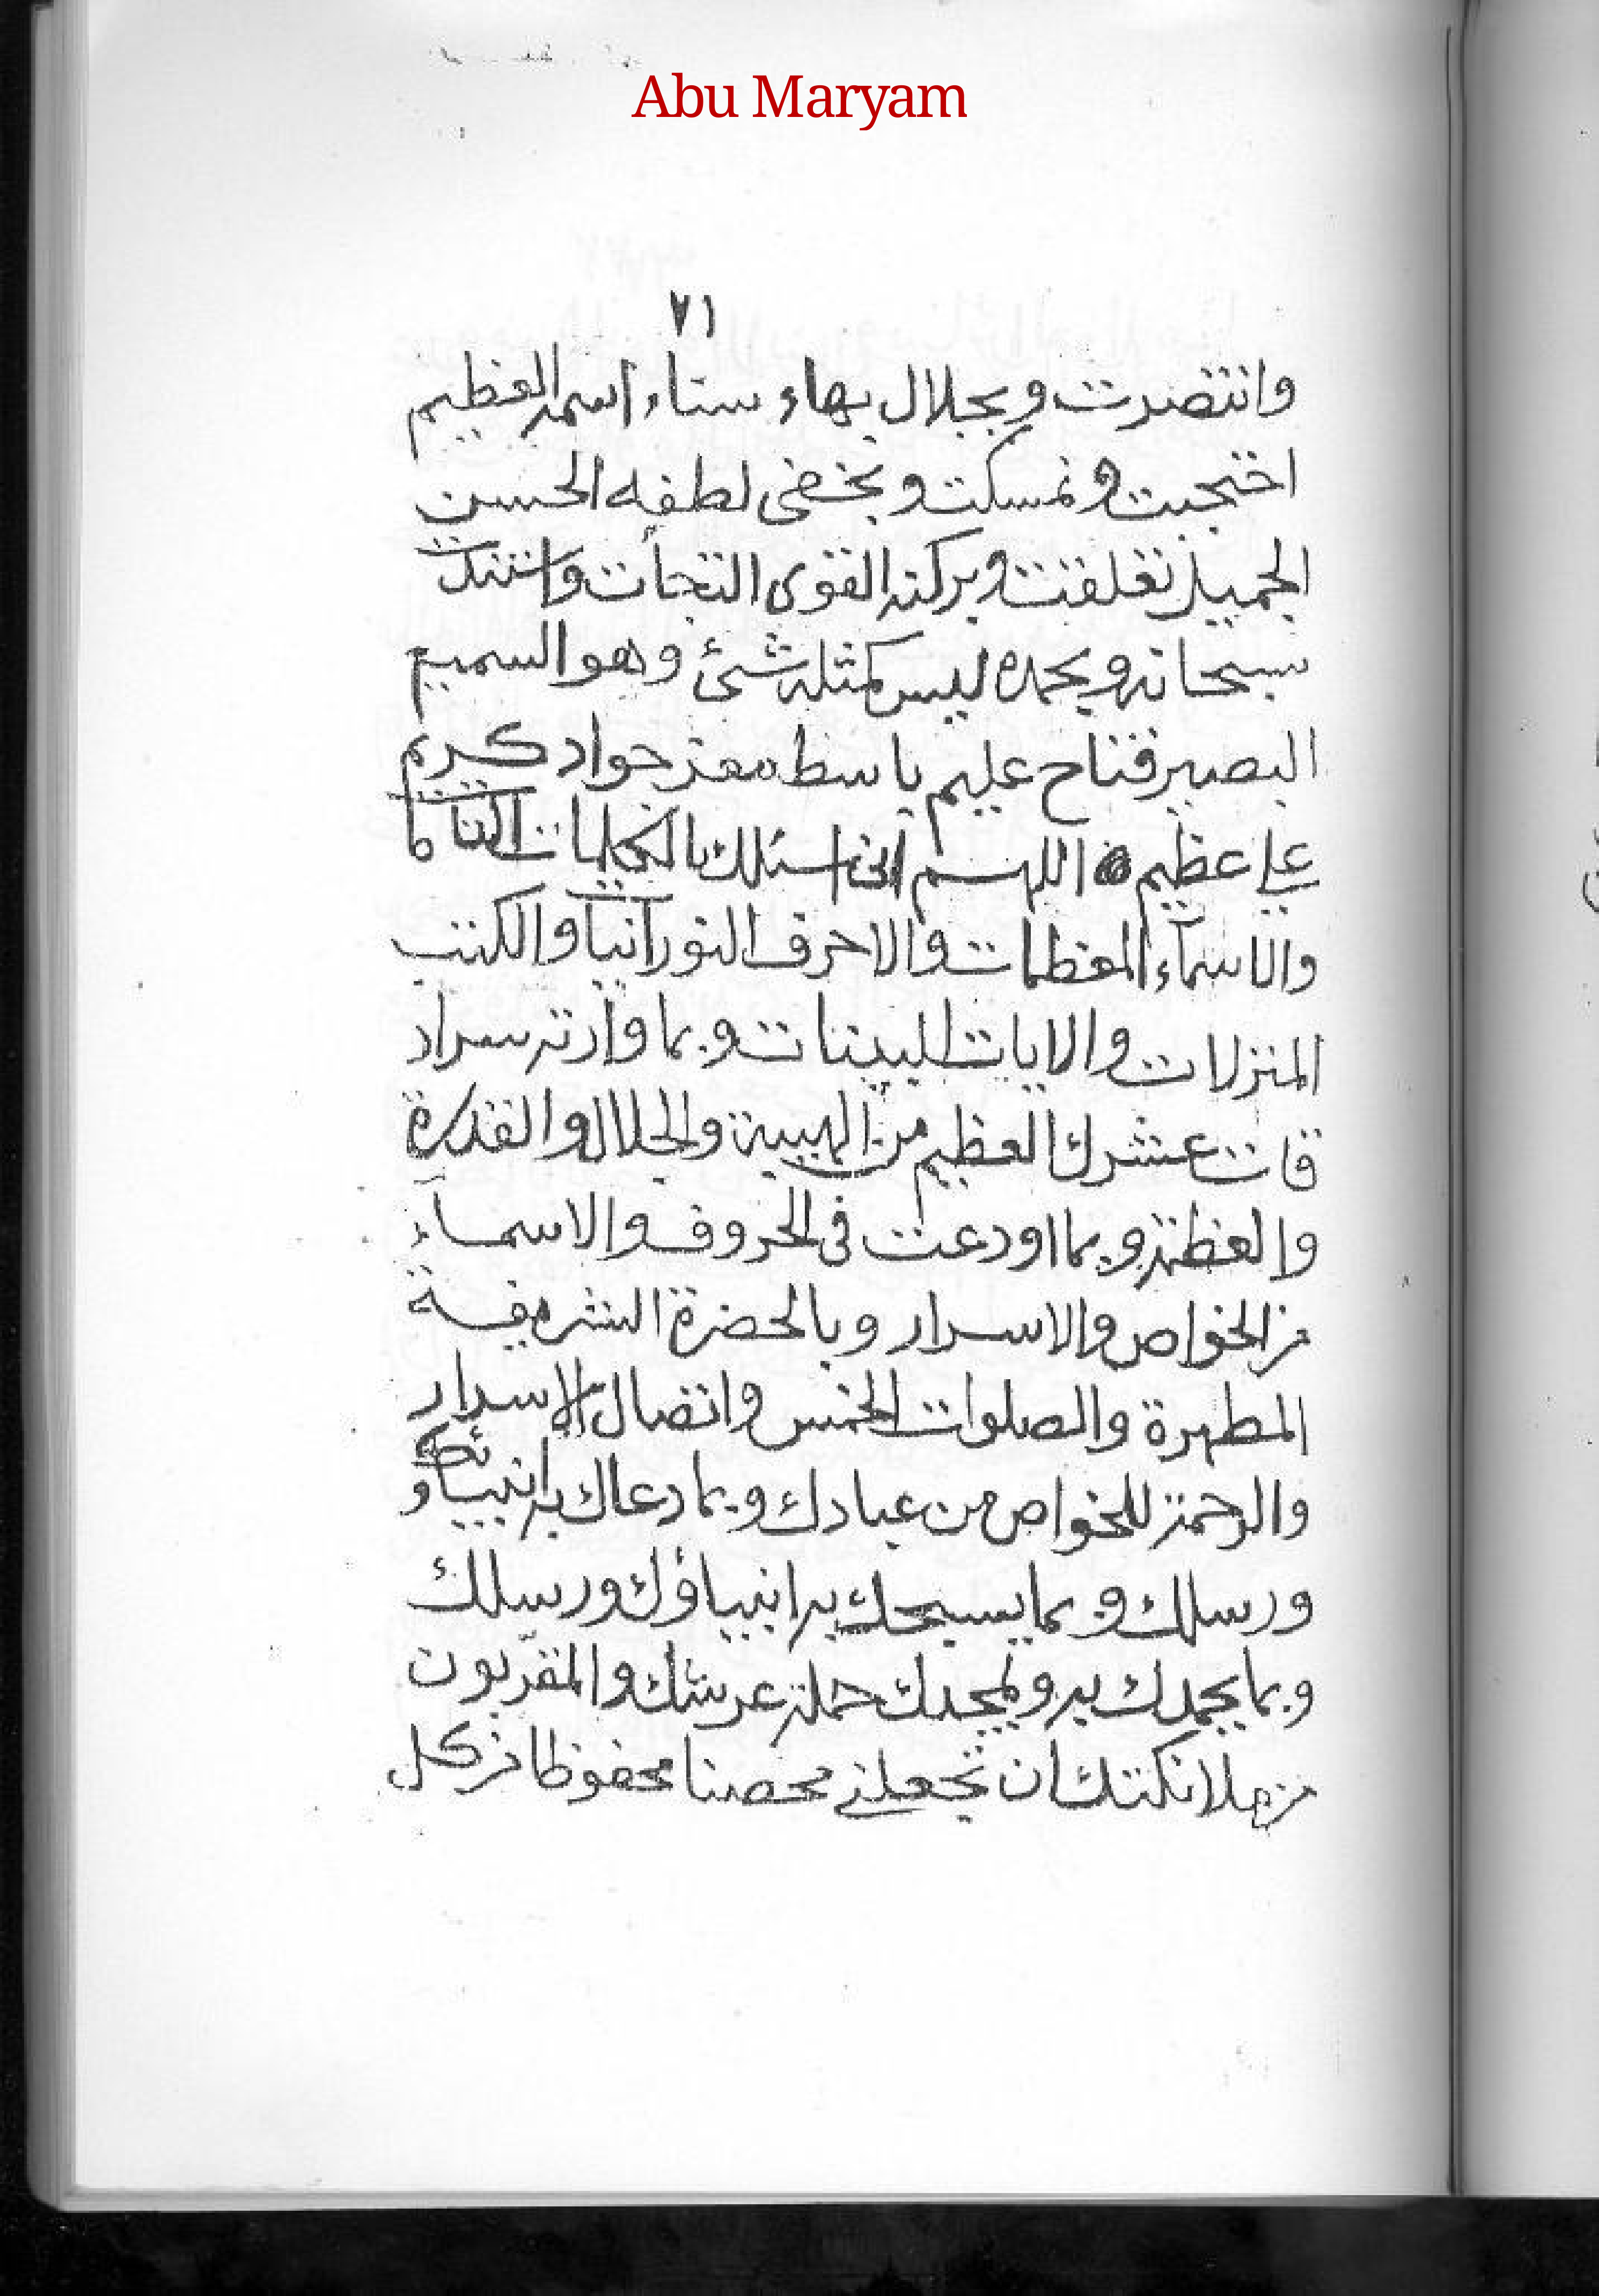 Abu Maryam
٧١
وانتصرت وبجلال بهاء سناء اسمه العظيم
احتجبت وتمسكت وبخفى لطفه الحسن
الجميل تعلقت وبركنه القوى التجأت واستند
سبحانه وبحمده ليس كمثله شئ وهو السميع
البصير فتاح عليم باسط معز جواد كريم
على عظيم اللهم انى اسئلك بالتجليات
والاسماء المعظمات والاحرف النورانيا والكتب
المنزلات والايات البينات وبما وارته سراد
قات عشرك العظيم من الهيبة والجلال والقدرة
والعظمة وبما اودعت فى الحروف والاسمآء
من الخواص والاسرار وبالحضرة الشريفة
المطهرة والصلوات الخمس واتصال الاسرار
والرحمة للخواص من عبادك وبما دعاك به انبيائك و
ورسلك وبما يسبحك به انبياؤك ورسلك
وبما يحمدك به ويمجدك حملة عرشك والمقرّبون
من ملائكتك ان تجعلنى محصنا محفوظا من كل